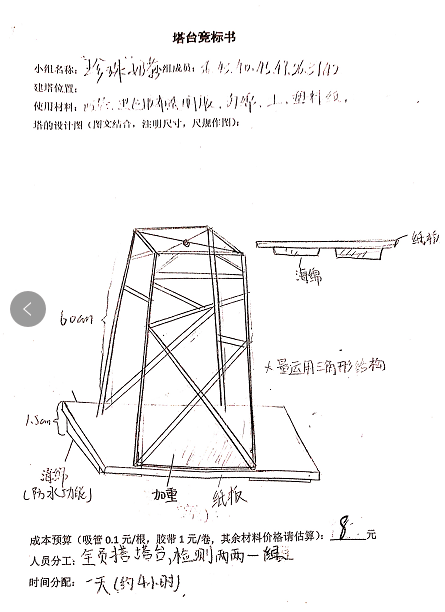 塔台竞标书
小组名称：珍珠奶茶 小组成员：
建塔位置：
使用材料：
塔的设计图（图文结合，注明尺寸，尺规作图）：
纸板
海绵
60cm
大量运用三角形结构
1.5cm
海绵
（防水功能）
加重
纸板
成本预算（吸管 0.1 元/根，胶带 1 元/卷，其余材料价格请估算）：8 元
人员分工：全员搭塔台，检测两两一组
时间分配：一天（约4小时）